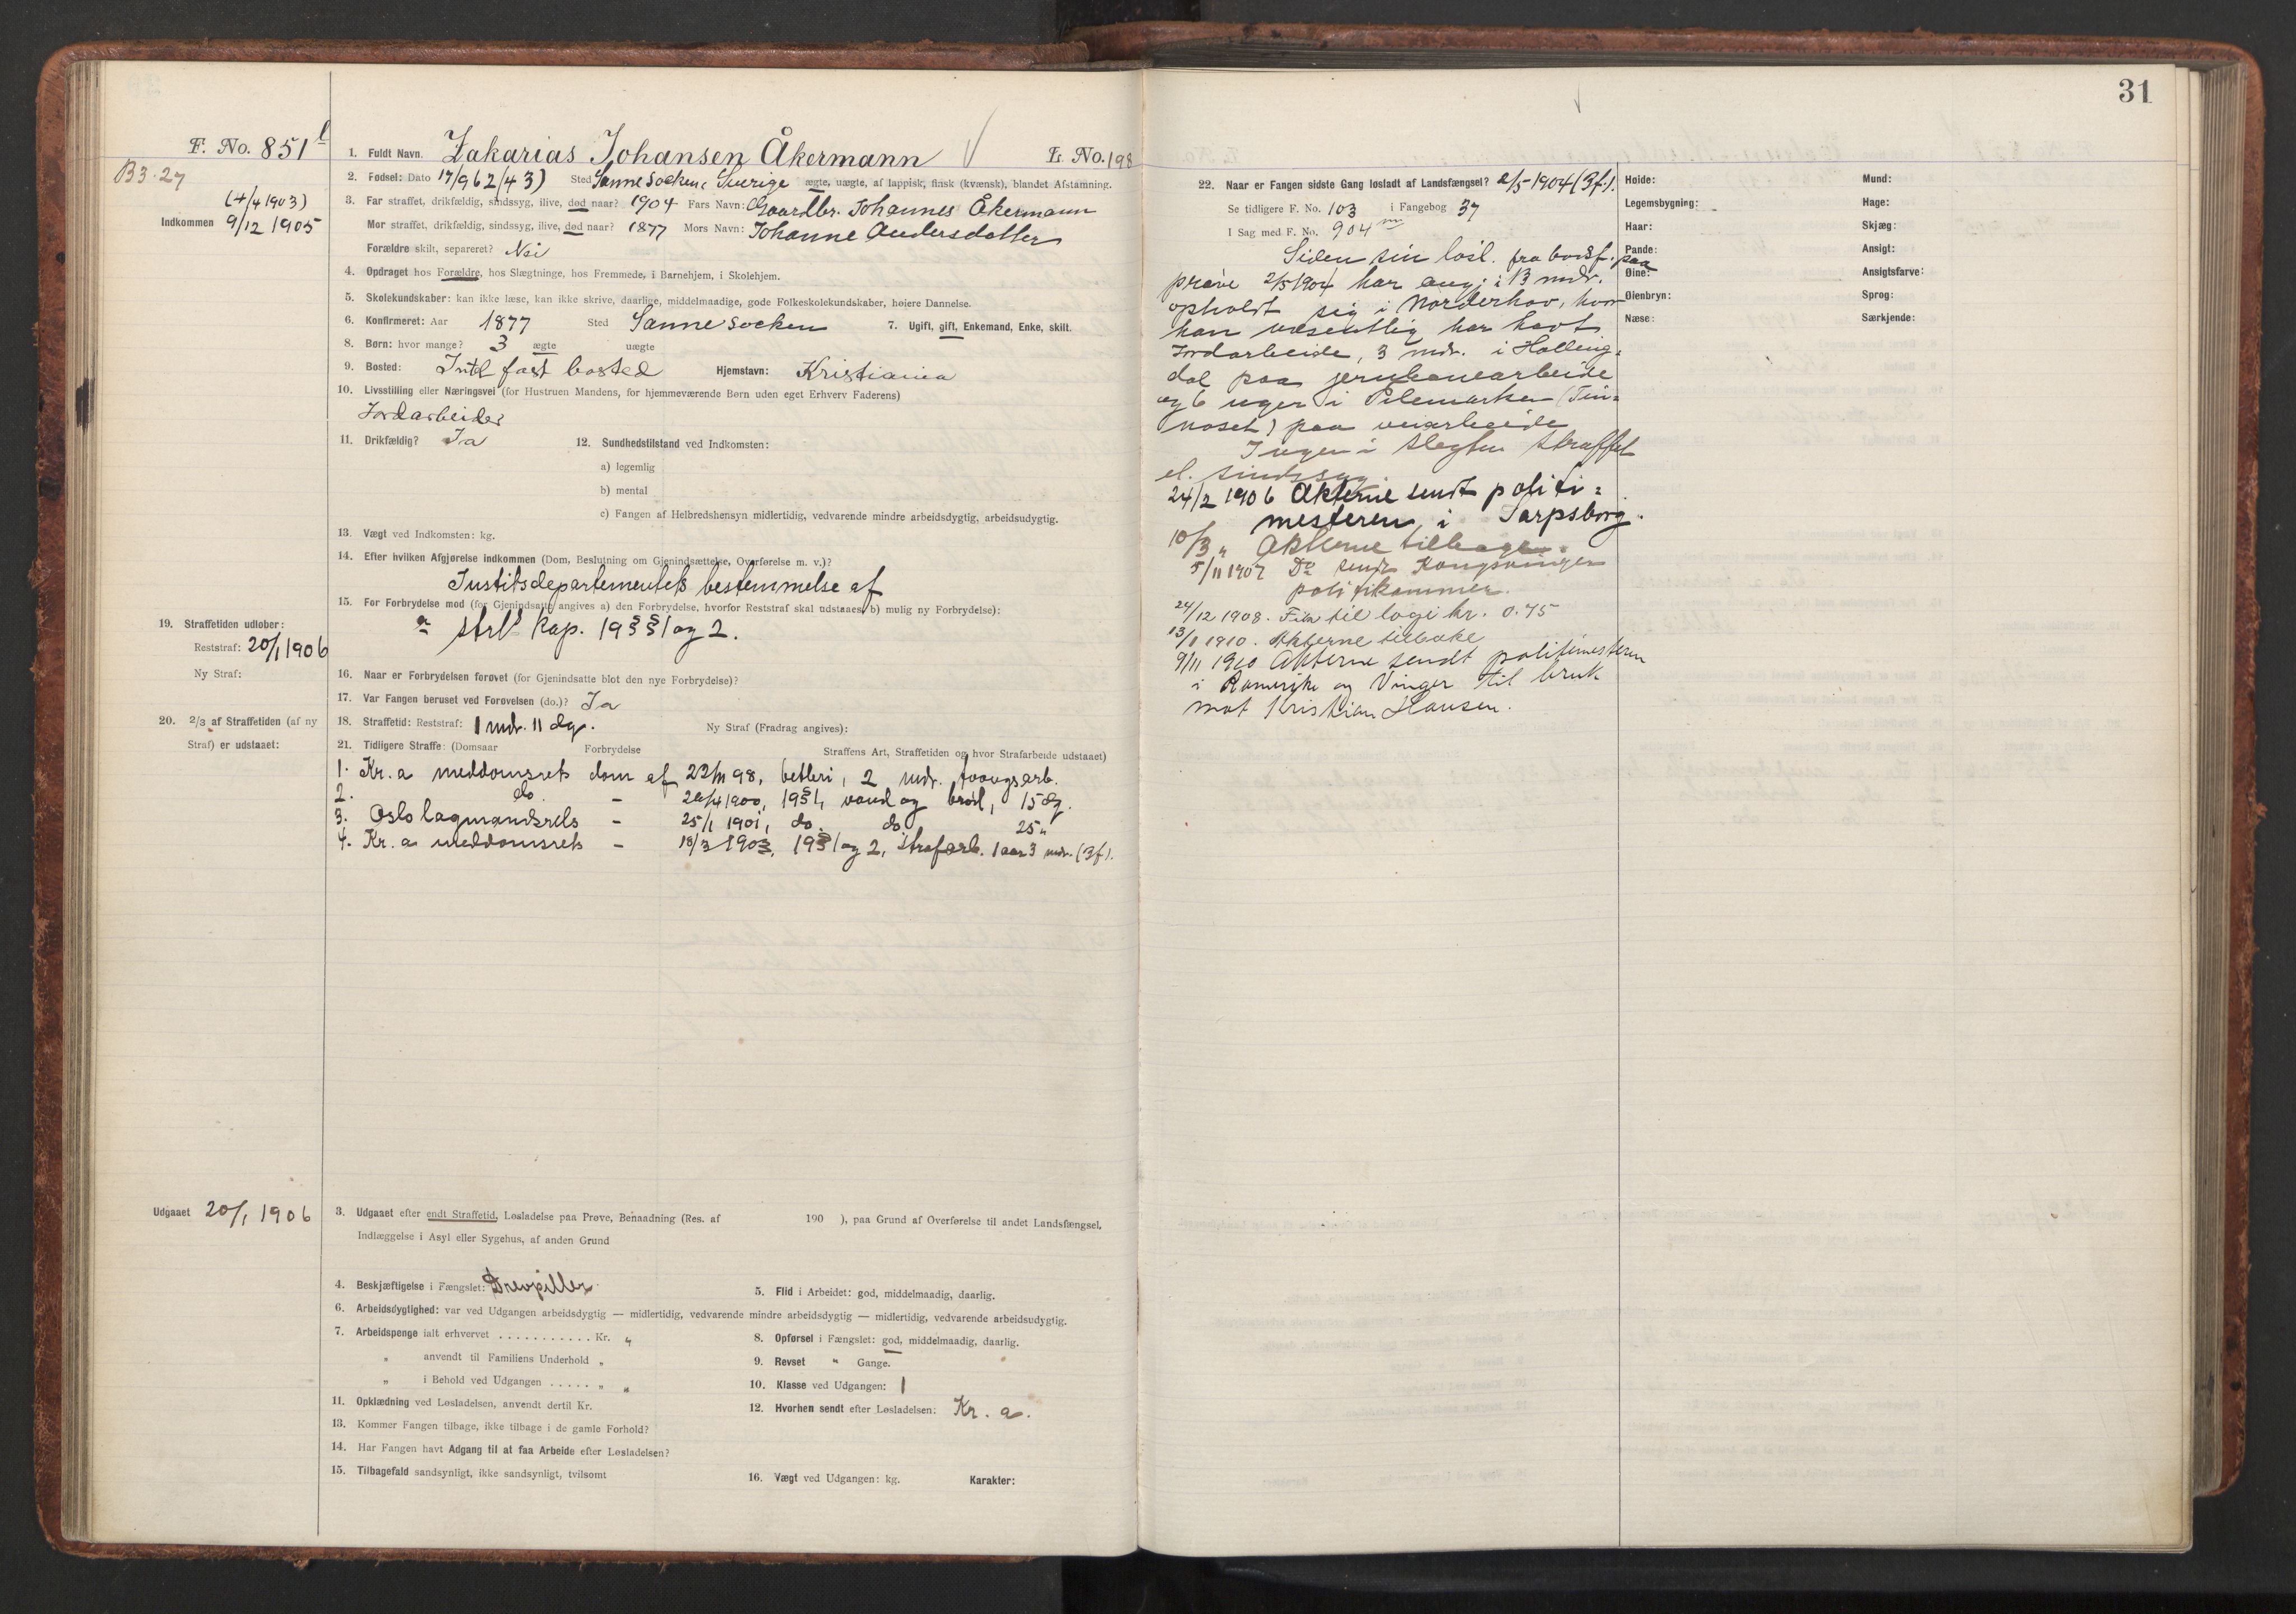 31
F. No. 851 l
B3.27
(4/4 1903)
Indkommen 9/12 1905
1. Fuldt Navn. Zakarias Johansen Åkermann L. No. 198
2. Fødsel: Dato 17/9 62 (43) Sted Sanne Socken, Sverige ægte, uægte, af lappisk, finsk (kvænsk), blandet Afstamning.
3. Far straffet, drikfældig, sindssyg, ilive, død naar? 1904 Fars Navn: Gaardbr. Johannes Åkermann
Mor straffet, drikfældig, sindssyg, ilive, død naar? 1877 Mors Navn: Johanne Andersdatter
Forældre skilt, separeret? Nei
4. Opdraget hos Forældre, hos Slægtninge, hos Fremmede, i Barnehjem, i Skolehjem.
5. Skolekundskaber: kan ikke læse, kan ikke skrive, daarlige, middelmaadige, gode Folkeskolekundskaber, høiere Dannelse.
6. Konfirmeret: Aar 1877 Sted Sanne socken 7. Ugift, gift, Enkemand, Enke, skilt.
8. Børn: hvor mange? 3 ægte uægte
9. Bosted: Intet fast bosted Hjemstavn: Kristiania
10. Livsstilling eller Næringsvei (for Hustruen Mandens, for hjemmeværende Børn uden eget Erhverv Faderens)
Jordarbeider
11. Drikfældig? Ja 12. Sundhedstilstand ved Indkomsten:
a) legemlig
b) mental
c) Fangen af Helbredshensyn midlertidig, vedvarende mindre arbeidsdygtig, arbeidsudygtig.
13. Vægt ved Indkomsten: kg.
14. Efter hvilken Afgjørelse indkommen (Dom, Beslutning om Gjenindsættelse, Overførelse m. v.)?
Justitsdepartementets bestemmelse af
15. For Forbrydelse mod (for Gjenindsatte angives a) den Forbrydelse, hvorfor Reststraf skal udstaaes, b) mulig ny Forbrydelse):
a strl. kap. 19 §§ 1 og 2.
19. Straffetiden udløber:
Reststraf: 20/1 1906
Ny Straf:
16. Naar er Forbrydelsen forøvet (for Gjenindsatte blot den nye Forbrydelse)?
17. Var Fangen beruset ved Forøvelsen (do.)? Ja
20. 2/3 af Straffetiden (af ny
Straf) er udstaaet:
18. Straffetid: Reststraf: 1 mdr. 11 dg. Ny Straf (Fradrag angives):
21. Tidligere Straffe: (Domsaar Forbrydelse Straffens Art, Straffetiden og hvor Strafarbeide udstaaet)
1. Kr.a meddomsrets dom af 23/11 98, betleri, 2 mdr. tvangsarb.
2. do. – 26/4 1900, 19 § 1, vand og brød, 15 dg.
3. Oslo lagmandsrets – 25/1 1901, do. do. 25 "
4. Kr.a meddomsrets – 18/3 1903, 19 § 1 og 2, strafarb. 1 aar 3 mdr. (Bf).
Udgaaet 20/1 1906
3. Udgaaet efter endt Straffetid, Løsladelse paa Prøve, Benaadning (Res. af 190 ), paa Grund af Overførelse til andet Landsfængsel,
Indlæggelse i Asyl eller Sygehus, af anden Grund
4. Beskjæftigelse i Fængslet: Drevpiller 5. Flid i Arbeidet: god, middelmaadig, daarlig.
6. Arbeidsdygtighed: var ved Udgangen arbeidsdygtig — midlertidig, vedvarende mindre arbeidsdygtig — midlertidig, vedvarende arbeidsudygtig.
7. Arbeidspenge ialt erhvervet . . . . . . . . . . . Kr. " 8. Opførsel i Fængslet: god, middelmaadig, daarlig.
" anvendt til Familiens Underhold " 9. Revset " Gange.
" i Behold ved Udgangen . . . . . " " 10. Klasse ved Udgangen: 1
11. Opklædning ved Løsladelsen, anvendt dertil Kr. 12. Hvorhen sendt efter Løsladelsen: Kr.a.
13. Kommer Fangen tilbage, ikke tilbage i de gamle Forhold?
14. Har Fangen havt Adgang til at faa Arbeide efter Løsladelsen?
15. Tilbagefald sandsynligt, ikke sandsynligt, tvilsomt 16. Vægt ved Udgangen: kg. Karakter:
22. Naar er Fangen sidste Gang løsladt af Landsfængsel? 2/5 1904 (Bf.).
Se tidligere F. No. 103 i Fangebog 37
I Sag med F. No. 904 m
Siden sin løsl. fra bodsf. paa
prøve 2/5 1904 har ang. i 13 mdr.
opholdt sig i Norderhov, hvor
han væsentlig har havt
Jordarbeide, 3 mdr. i Halling-
dal paa jernbanearbeide
og 6 uger i Telemarken (Tin-
noset) paa veiarbeide
Ingen i slegten straffet
el. sindssyg.
24/2 1906 Akterne sendt politi-
mesteren i Sarpsborg.
10/3 " Akterne tilbage.
5/11 1907 Do sendt Kongsvinger
politikammer.
24/12 1908. Fik til logi kr. 0.75
13/1 1910. Akterne tilbake
9/11 1910 Akterne sendt politimesteren
i Romerike og Vinger til bruk
mot Kristian Hansen.
Høide: Mund:
Legemsbygning: Hage:
Haar: Skjæg:
Pande: Ansigt:
Øine: Ansigtsfarve:
Øienbryn: Sprog:
Næse: Særkjende: